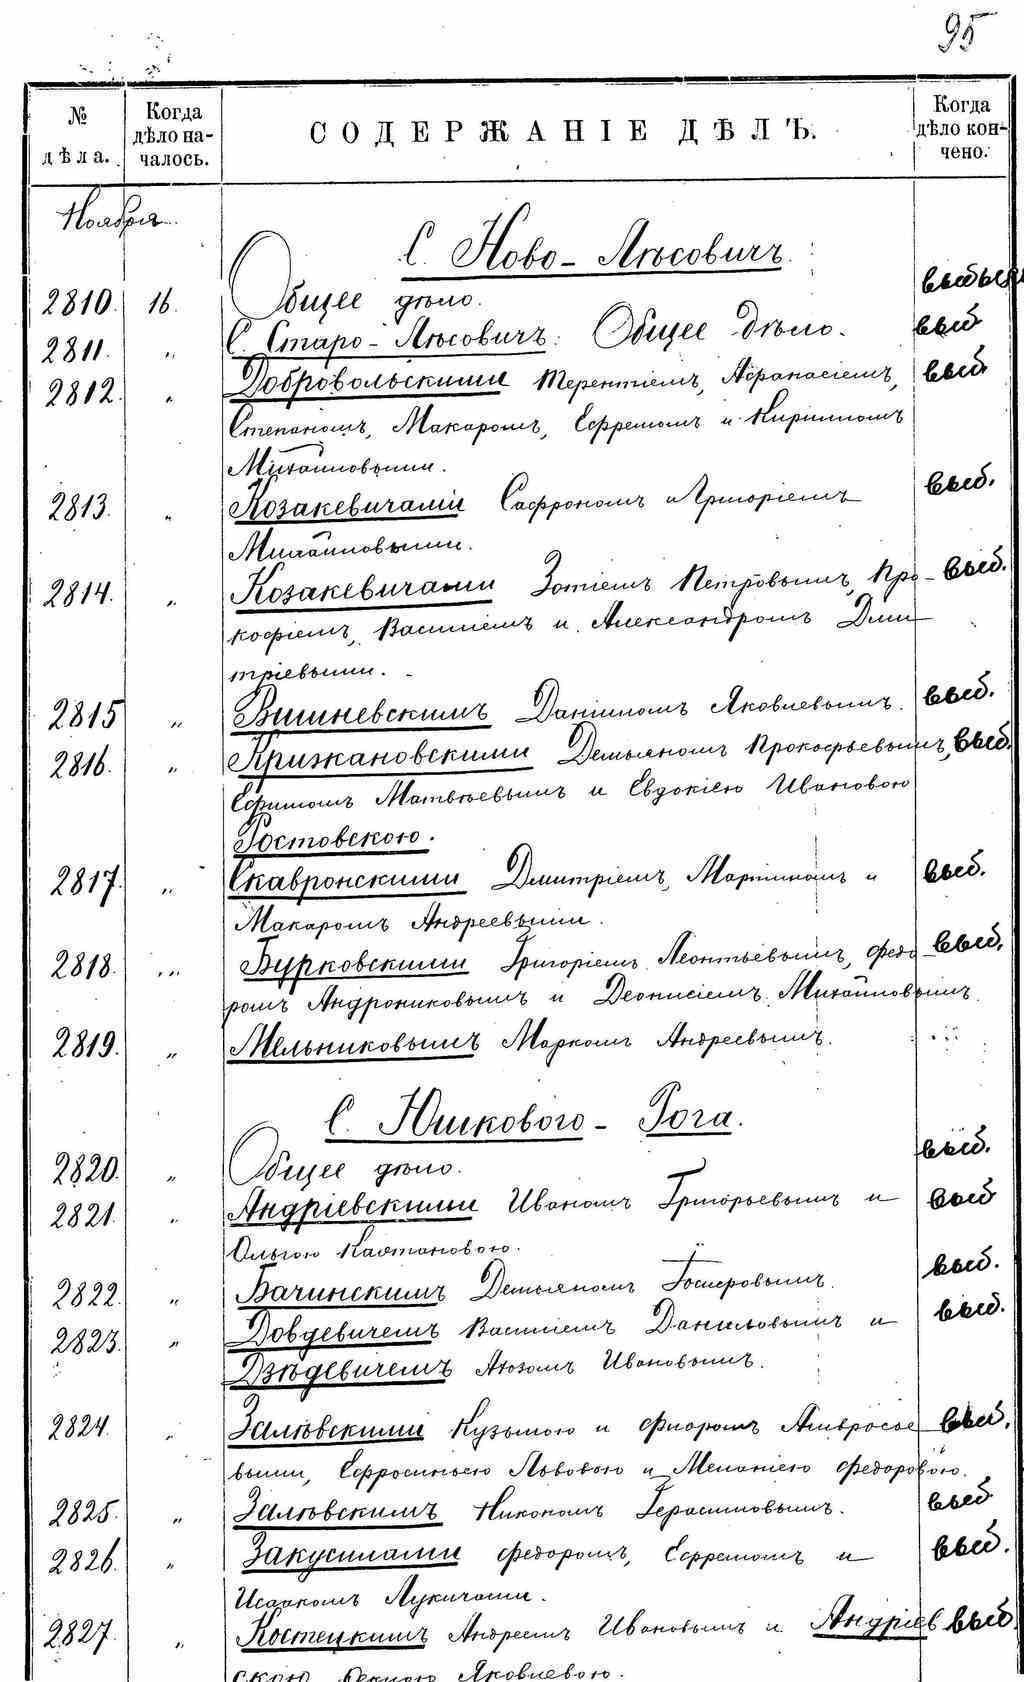 95
№ дѣла. Когда дѣло началось. СОДЕРЖАНІЕ ДѢЛЪ. Когда дѣло кончено.
Ноября
С. Ново-Лѣсовичъ.
2810. 16. Общее дѣло. выбыли
2811. „ С. Старо-Лѣсовичъ: Общее дѣло. выб
2812. „ Добровольскими Терентіемъ, Афанасіемъ, выб.
Степаномъ, Макаромъ, Ефремомъ и Кирилломъ
Михайловыми.
2813. „ Козакевичами Сафрономъ и Григоріемъ выб.
Михайловыми.
2814. „ Козакевичами Зотіемъ Петровымъ, Про- выб.
кофіемъ, Василіемъ и Александромъ Дми
тріевыми.
2815 „ Вишневскимъ Даніиломъ Яковлевымъ. выб.
2816. „ Крижановскими Демьяномъ Прокофьевымъ, выб.
Ефимомъ Матвѣевымъ и Евдокіею Ивановою
Ростовскою.
2817. „ Скавронскими Дмитріемъ, Мартиномъ и выб.
Макаромъ Андреевыми.
2818. „ Бурковскими Григоріемъ Леонтьевымъ, Федо выб.
ромъ Андрониковымъ и Деонисіемъ Михайловымъ.
2819. „ Мельниковымъ Маркомъ Андреевымъ.
С. Юшкового-Рога.
2820. „ Общее дѣло. выб.
2821. „ Андріевскими Иваномъ Григорьевымъ и выб
Ольгою Каэтановою.
2822. „ Бачинскимъ Демьяномъ выб.
2823. „ Довдевичемъ Василіемъ Даниловымъ и выб.
Дзѣдевичемъ Ивановымъ.
2824. „ Залѣвскими Кузьмою и Флоромъ Амвросіе выб.
выми, Ефросиньею Львовою и Меланіею Федоровою.
2825. „ Залѣвскимъ Никономъ Герасимовымъ. выб
2826. „ Закусилами Федоромъ, Ефремомъ и выб.
Исакомъ Лукичами.
2827. „ Костецкимъ Андреемъ Ивановымъ и Андріев выб.
скою Яковлевою.